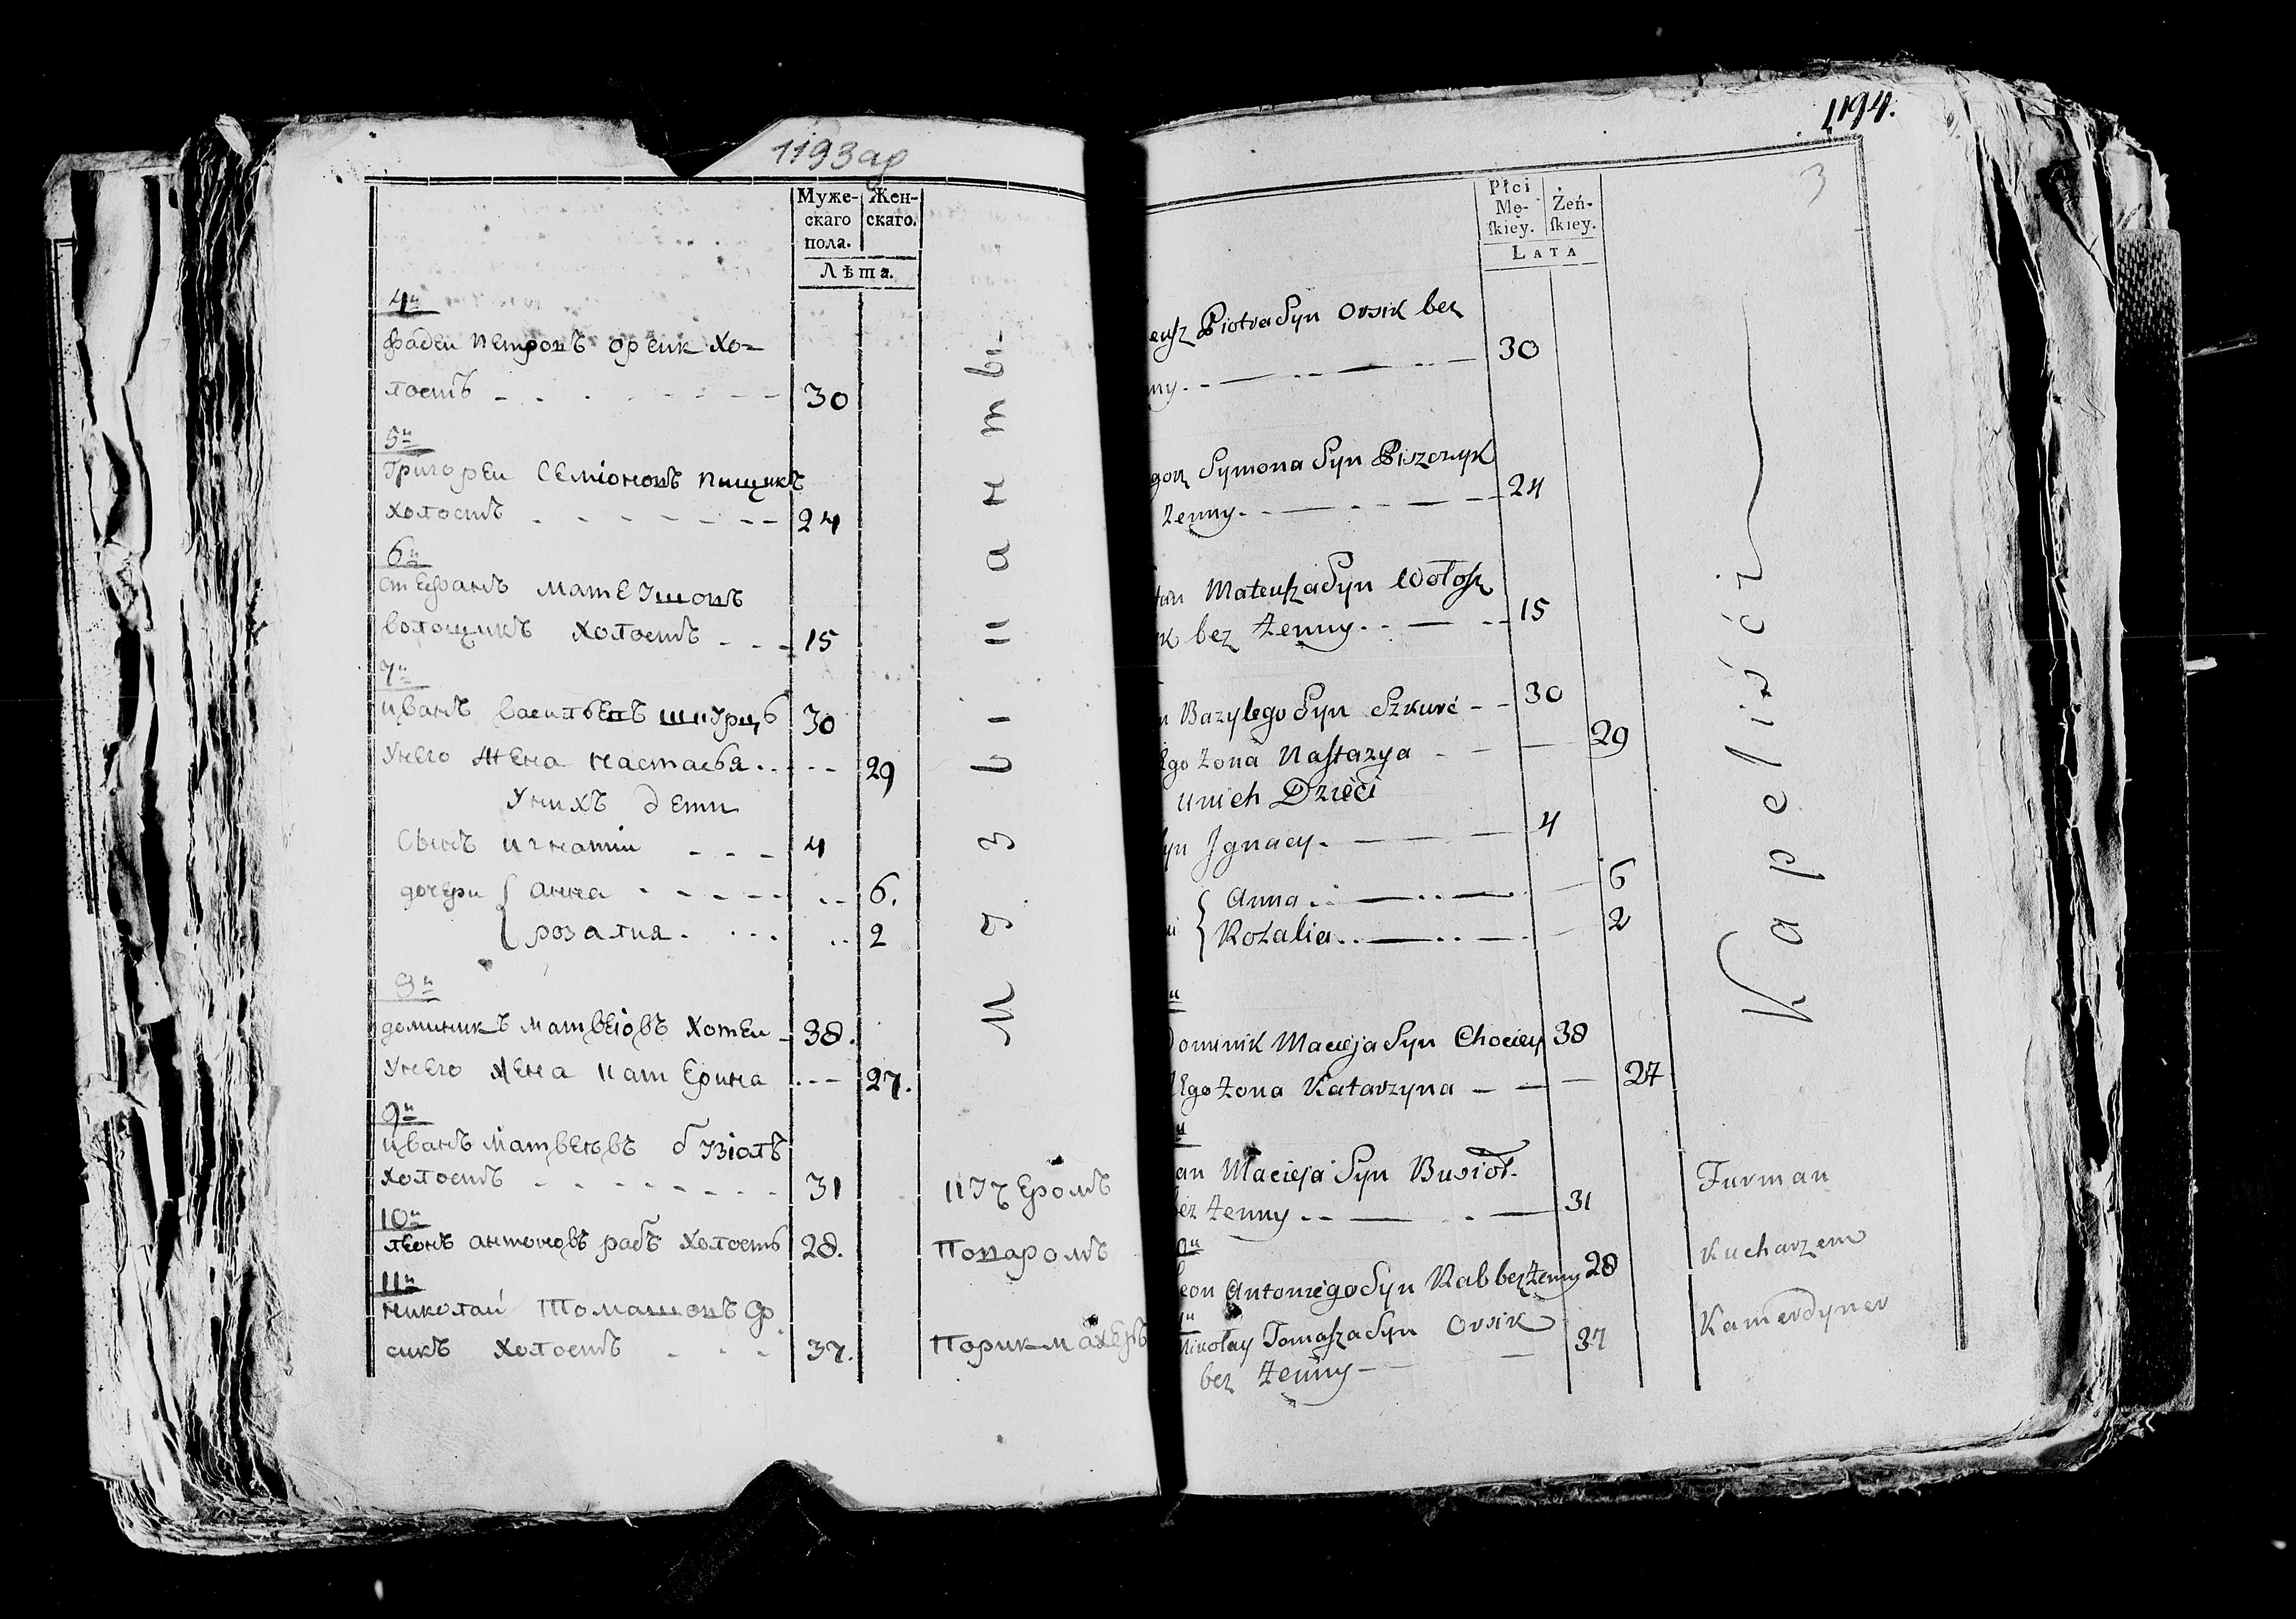 1193аg
Муже-
скаго
пола.
Жен-
скаго.
Лѣта.
4й
фадеи петровъ орсик хо-
лостъ 30
5й
григореи семіоновъ пищикъ
холостъ 24
6й
стефанъ матеушовъ
волощикъ холостъ 15
7й
иванъ васильевъ шкурць 30
Унего жена настасья 29
Унихъ дети
Сынъ игнатіи 4
дочери { анна 6.
розалия. 2
8й
доминикъ матвеіовъ хотеи 38.
Унего жена катерина 27.
9й
иванъ матвеевъ бузіолъ
холостъ 31 кучеромъ
10й
леонъ антоновъ рабъ холостъ 28. Поваромъ
11й
николай томашовъ ор
сикъ холостъ 37. Парикмахеръ
Музыканты-
1194.
3
Płci
Mę-
ſkiey.
Żeń-
ſkiey.
LATA
eusz Piotra Syn Orsik bez
ny. 30
gorz Symona Syn Piszczyk
żenny. 24
fan Mateusza Syn Wołosz
k bez żenny. 15
n Bazylego Syn Szkurć 30
Ego żona Nastazya 29
u nich Dzieci
yn Jgnacy. 4
{ Anna 6
Rozalia 2
Dominik Macieja Syn Chociey 38
Ego żona Katarzyna 27
an Macieja Syn Busioł.
bez żenny 31 Furman
eon Antoniego Syn Rab bez żenny 28 Kucharzem
Mikołay Tomasza Syn Orsik 37 Kamerdyner
bez żenny
Kapeliści